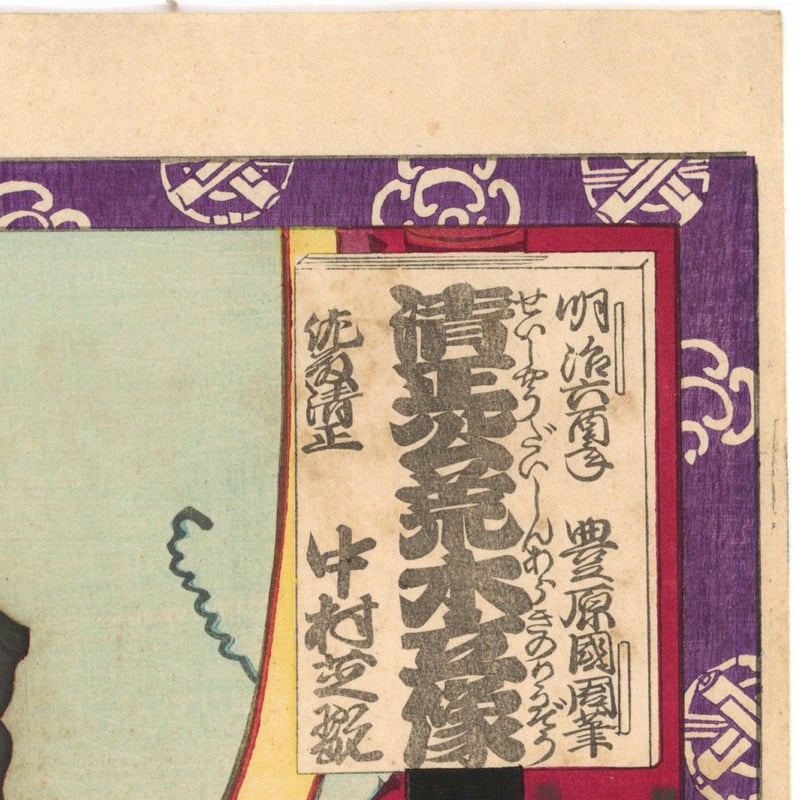 明治六酉年 豊原國周筆
せいしやうだいしんあらきのりうぞう
清正公荒木像
佐藤清正 中村芝翫